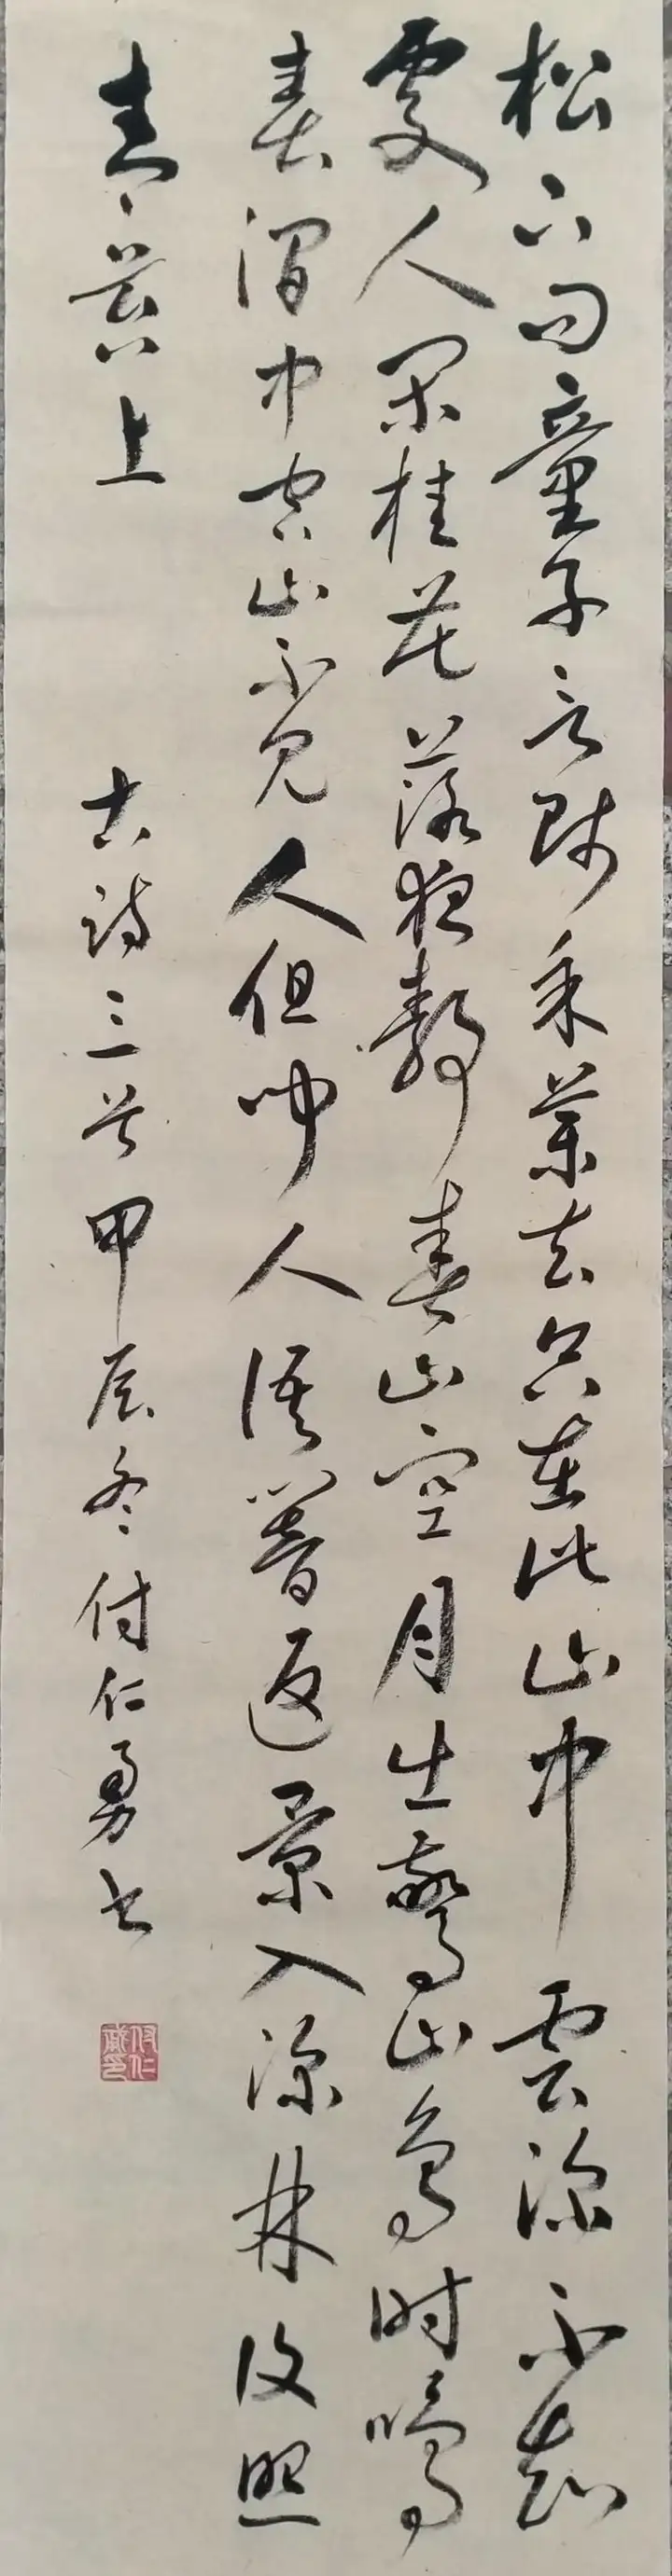 松下问童子言师采药去只在此山中雲深不知
處人闲桂花落夜静春山空月出驚山鸟时鳴
春澗中空山不见人但闻人语响返景入深林復照
青苔上
古诗三首甲辰冬付仁勇书
付仁